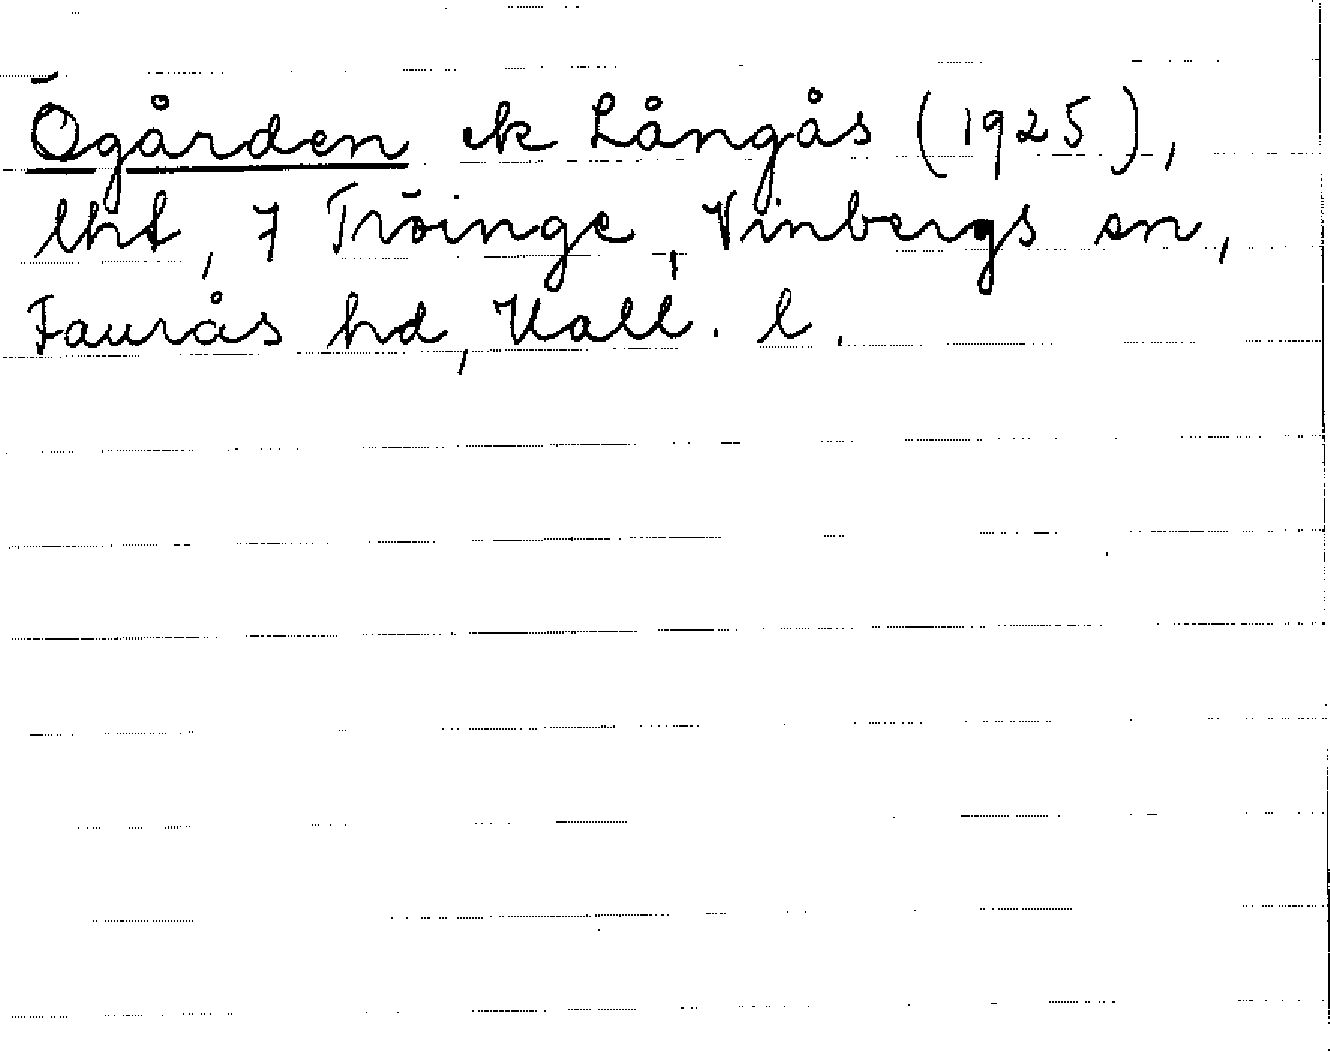 Ögården el Långås (1925),
lht, 7 Tröinge, Vinbergs sn,
Faurås hd, Hall. l.